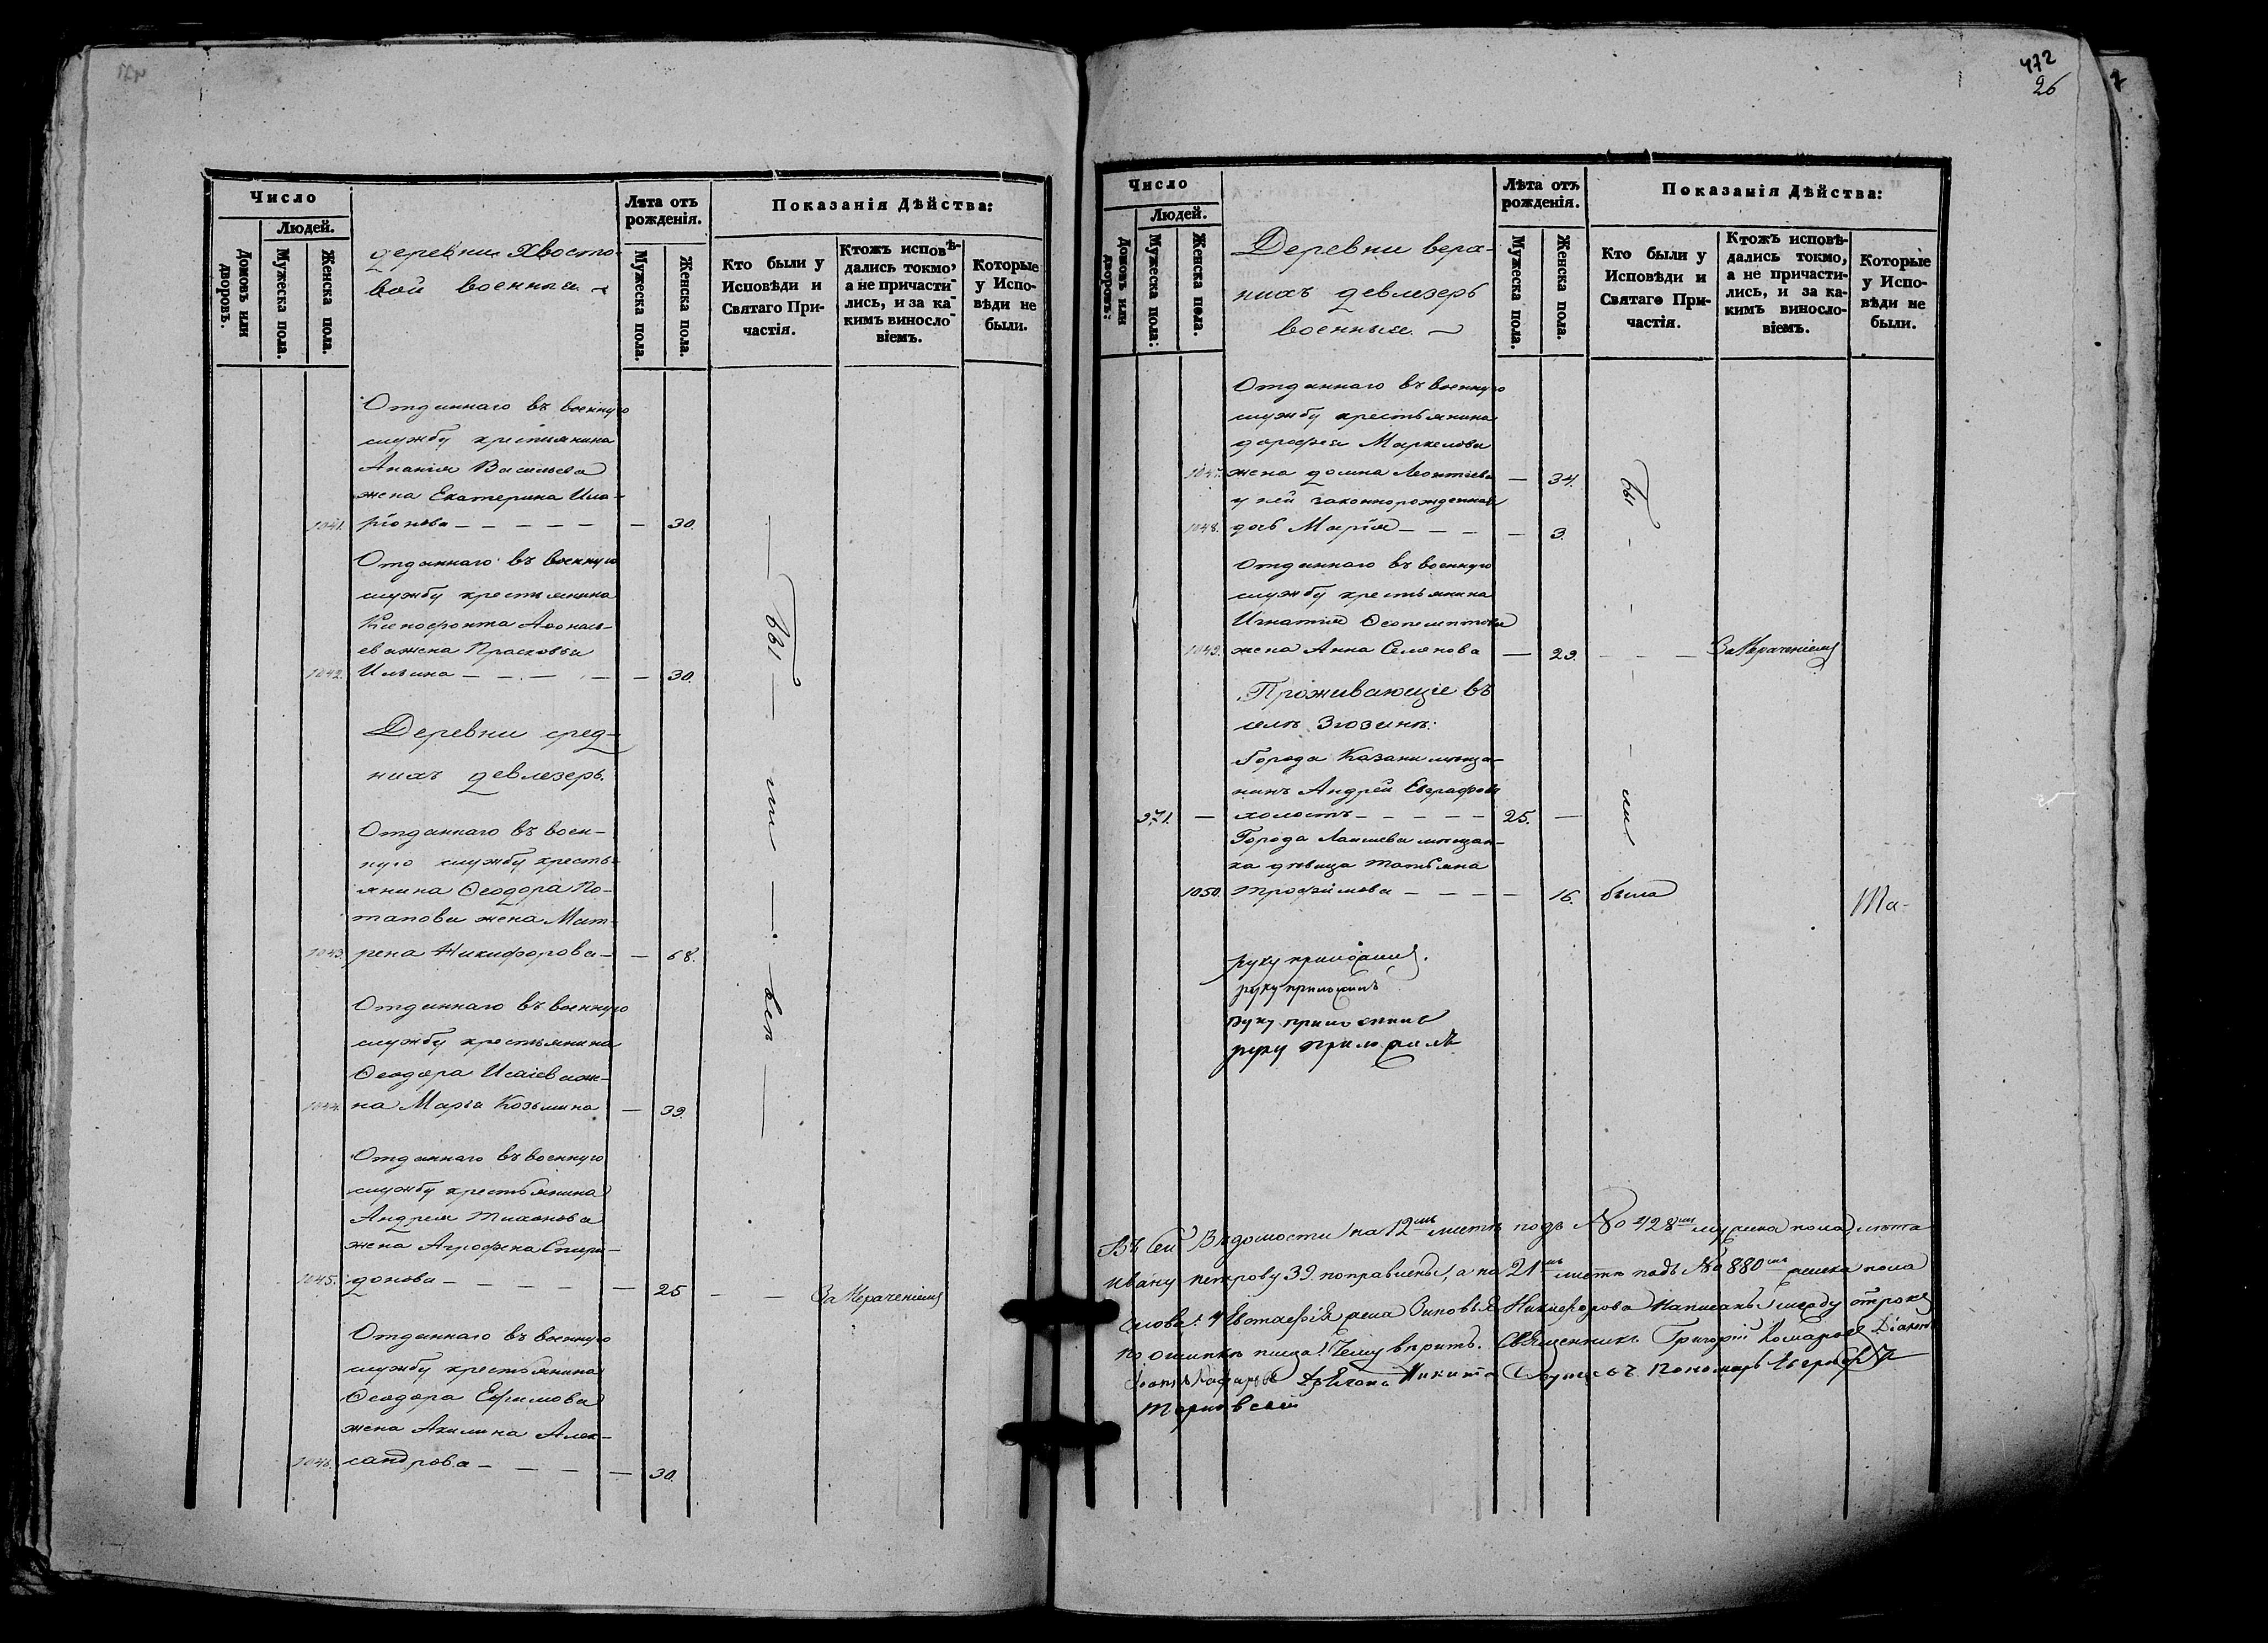 Число
Людей.
Домовъ или дворовъ.
Мужеска пола.
Женска пола.
деревни Хвосто-
вой военныя
Лѣта отъ рожденія.
Мужеска пола.
Женска пола.
Показанія Дѣйства:
Кто были у Исповѣди и Святаго Причастія.
Ктожъ исповѣ-
дались токмо,
а не причасти-
лись, и за ка-
кимъ винослo-
віемъ.
Которые
у Испо-
вѣди не
были.
Отданнаго въ военную
службу крестьянина
Ананія Васильева
жена Екатерина Ила-
1041. ріонова — 30.
Отданнаго въ военную
службу крестьянина
Ксенофонта Афонась-
ева жена Прасковья
1042. Ильина — 30.
Деревни сред-
нихъ девлезерь.
Отданнаго въ воен-
ную службу кресть-
янина Ѳеодора По-
тапова жена Мат-
1043. рена Никифорова — 68.
Отданнаго въ военную
службу крестьянина
Ѳеодора Исаіева же-
1044. на Марѳа Козьмина — 39.
Отданнаго въ военную
службу крестьянина
Андрея Тихонова
жена Агрофена Спири-
1045. донова — 25 — За Нераченіемъ
Отданнаго въ военную
службу крестьянина
Ѳеодора Ефимова
жена Акилина Алек-
1046. сандрова — 30.
бы — ли — всѣ
472
26
Число
Людей.
Домовъ или дворовъ:
Мужеска пола:
Женска пола.
Деревни верх-
нихъ девлезерь
военныя.
Лѣта отъ рожденія.
Мужеска пола.
Женска пола.
Показанія Дѣйства:
Кто были у Исповѣди и Святаго Причастія.
Ктожъ исповѣ-
дались токмо,
а не причасти-
лись, и за ка-
кимъ винослo-
віемъ.
Которые
у Испо-
вѣди не
были.
Отданнаго въ военную
службу крестьянина
дорофея Маркелова
1047. жена домна Леонтіева — 34.
у ней законнорожденная
1048. дочь Марія — 3.
Отданнаго въ военную
службу крестьянина
Игнатія Ѳеопемптова
1049. жена Анна Семенова — 29. — За Нераченіемъ
Проживающіе въ
селѣ Зюзинѣ:
Города Казани мѣща-
нинъ Андрей Евграфовъ
971. — холостъ — 25. —
Города Лаишева мѣщан-
ка дѣвица Татьяна
1050. Трофимова — 16. была
бы — ли
Та-
руку приложилъ.
руку приложилъ
руку приложилъ
руку приложилъ
Въ сей Вѣдомости на 12мъ листѣ подъ № 428мъ мужеска пола лѣта
Ивану Петрову 39. поправлены, а на 21мъ листѣ подъ № 880мъ женска пола
слова: жена Зиновья Никифорова написаны между строкъ
по ошибкѣ писца. Чему вѣрить. Священникъ Григорій Комаровъ Діаконъ
Никита Пономарь Евграфъ
Терновскій